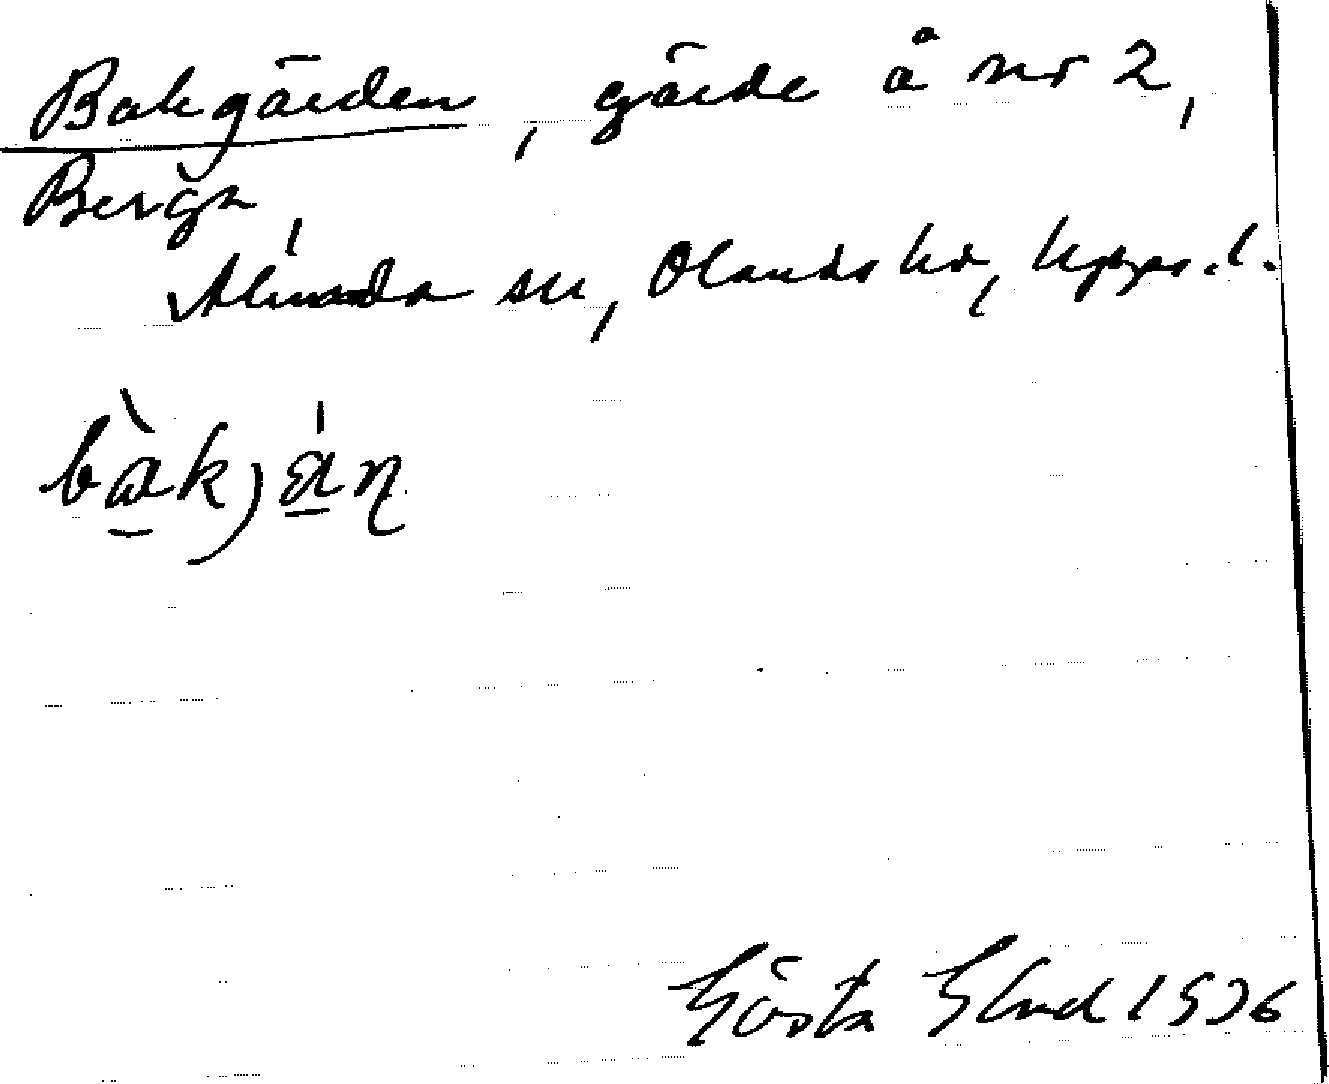 Bakgärden, gärde å nr 2,
Berga,
Alunda sn, Olands hd, Upps. l.
bàkjän
Gösta Eklund 1936